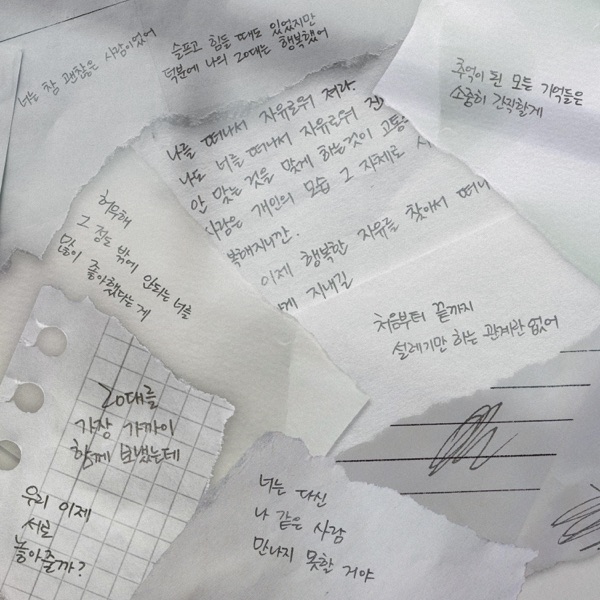 너는 참 괜찮은 사람이었어
슬프고 힘들 때도 있었지만
덕분에 나의 20대는 행복했어
추억이 된 모든 기억들은
소중히 간직할게
나를 떠나서 자유로워 져라.
나도 너를 떠나서 자유로워 진
안 맞는 것을 맞게 하는것이 고통
사랑은 개인의 모습 그 자체로
복해지니깐.
이제 행복한 자유를 찾아서 떠나
하게 지내길
허무해
그 정도 밖에 안되는 너를
많이 좋아했다는게
처음부터 끝까지
설레기만 하는 관계란 없어
20대를
가장 가까이
함께 보냈는데
우리 이제
서로
놓아줄까?
너는 다신
나 같은 사람
만나지 못할 거야